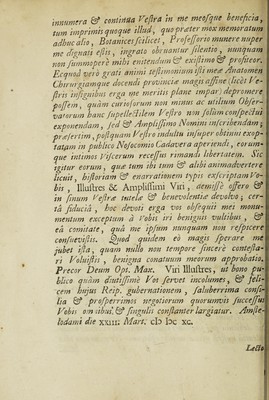 innumera & continua Vestra in me meosque beneficia,
tum inprimis quoque illud, quo præter mox memoratum
adhuc alio, Botanices scilicet, Professorio munere nuper
me dignati estis, ingrato obruantur silentio, nunquam
non summopere mihi enitendum & existimo & profiteor.
Ex quo a verò grati animi testimonium isti meæ Anatomen
Chirurgiamque docendi provinciæ magis affine (licèt Ve-
stris insignibus erga me meritis plane impar) depromere
possem, quàm curiosorum non minus ac utilium Obser-
vationum hanc supellectilem Vestro non solùm conspectui
exponendam, sed & Amplissimo Nomini inscribendam;
præsertim, postquam Vestro indultu insuper obtinui exop-
tatam in publico Nosocomio Cadavera aperiendi, eorum-
que intimos Viscerum recessus rimandi libertatem. Sic
igitur eorum, quæ tum ibi tum & alibi animadvertere
licuit, historiam & enarrationem typis exscriptam Vo-
bis, Illustres & Amplissimi Viri, demissè offero &
in sinum Vestræ tutelæ & benevolentiæ devolvo; cer-
tâ fiduciâ, hoc devoti erga vos obsequii mei monu-
mentum exceptum à Vobis iri benignis vultibus, &
eâ comitate, quâ me ipsum nunquam non respicere
consuevistis. Quod quidem eò magis sperare me
jubet ista, quam nullo non tempore sincerè contesta-
ri Voluistis, benigna conatuum meorum approbatio.
Precor Deum Opt. Max. Viri Illustres, ut bono pu-
blico quàm diutissimè Vos servet incolumes, & feli-
cem hujus Reip. gubernationem, saluberrima consi-
lia & prosperrimos negotiorum quorumvis successus
Vobis omnibus & singulis constanter largiatur. Amste-
lodami die XXIII. Mart. cIɔ Iɔc xc.
Lecto